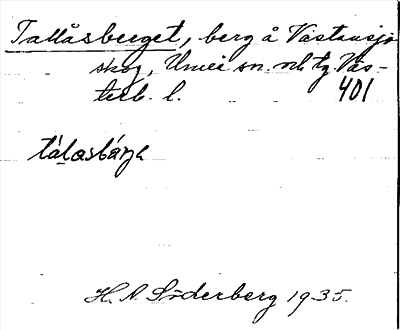 Tallåsberget, berg å Västansjö
skog, Umeå sn. nltg Väs-
terb. l. 401
tálasbárjə
H. N. Söderberg 1935.